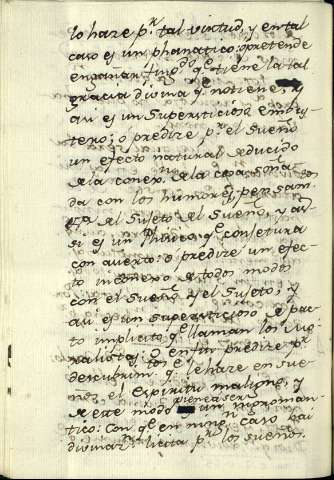 lo hare pr tal virtud, y en tal
caso es un phanatico, o pretende
engañar fingdo qe tiene la tal
gracia divina qe no tiene; y
asi es un Supersticioso embus
tero; ò predire pr el Sueño
un efecto natural deducido
de la conexn de la cosa soña
da con los humores, pensam
tos del Sujeto del Sueño, y as
si es un Phisico qe conjetura
con acierto: ò predire un efec
to de todos modos
con el Sueño, y el Sujeto; y
asi es un supersticioso de pac
to implicito qe llaman los Mo
ralistas; O en fin predire pr
descubrimto qe le hare en Sue
ños el espiritu maligno, y
de este modo un nigroman
tico: con qe en ningn caso hai
divinan licita pr los sueños.